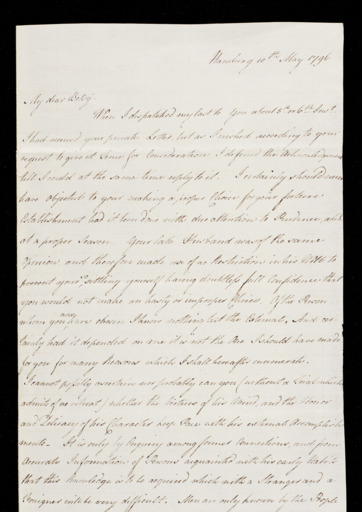 Hamburg 10th May 1796
My dear Betsy
When I dispatched my last to you about 5th or 6th Inst
I had received your private Letter, but as I wished according to your
request to give it some few Considerations I deferred the acknowledgement
till I could at the same time reply to it. I certainly should never
have objected to your making a proper Choice for your future
Establishment had it been done with due attention to Prudence and
at a proper Season. Your late Husband was of the same
opinion and therefore made use of no Restriction in his Will to
prevent your settling yourself having doubtless full Confidence that
you would not make an hasty or improper Choice. Of the Person
whom you have chosen I know nothing but the External, And cer
tainly had it depended on me it is not the One I should have made
for you for many Reasons which I shall hereafter enumerate.
I cannot possibly ascertain nor probably can you (without a trial which
admits of no retreat) whether the Virtues of his Mind, and the Honor
and Delicacy of his Character keep Pace with his external Accomplish
ments. It is only by Enquiry among former Connections, and from
Accurate Information of Persons acquainted with his early Habits
that this knowledge is to be acquired which with a Stranger and a
Foreigner will be very difficult. Men are only known by the People